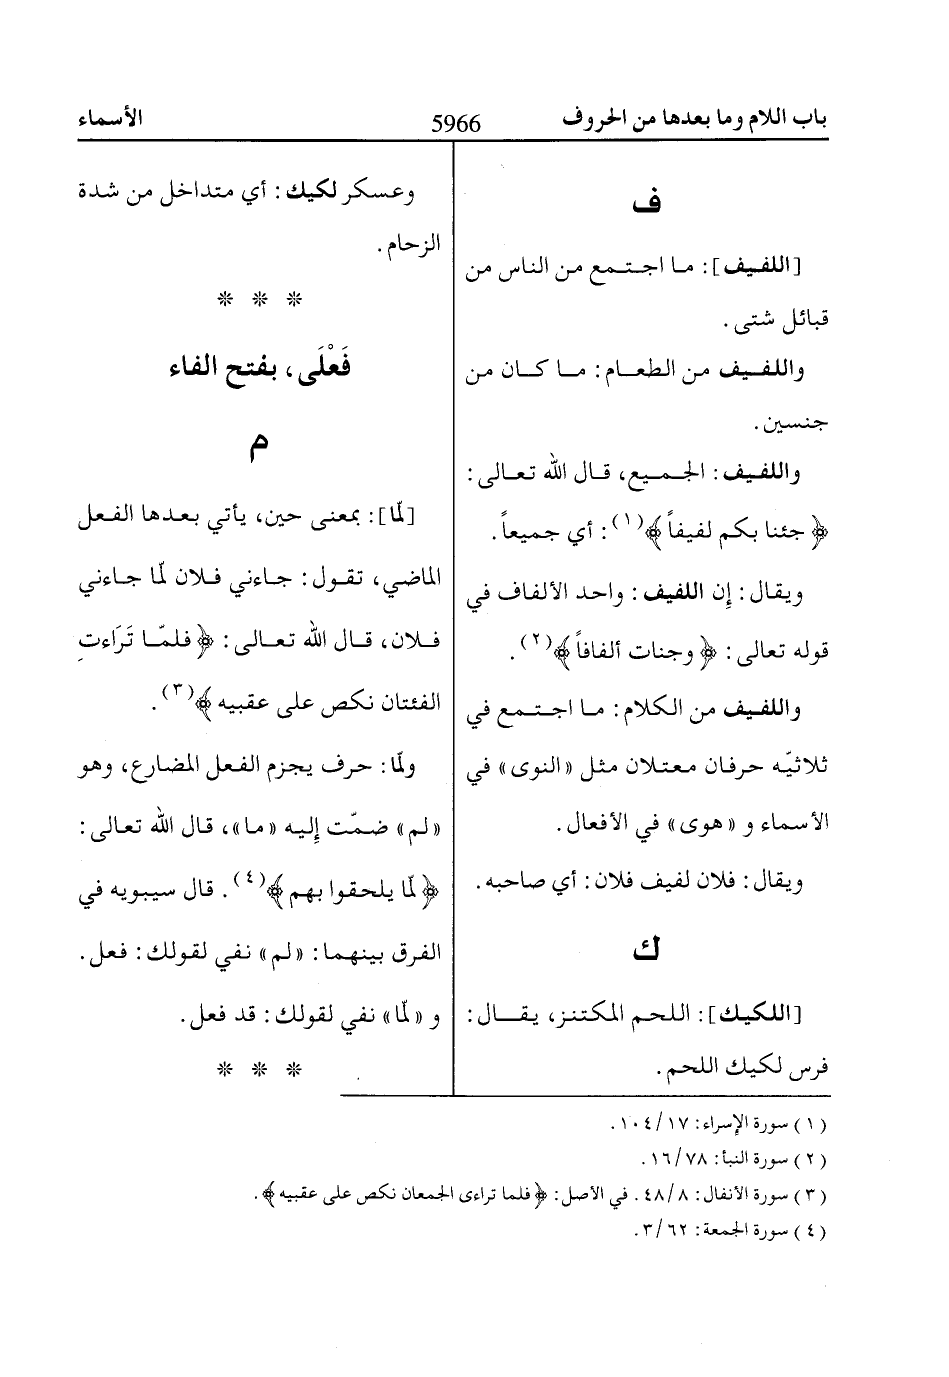 باب اللام وما بعدها من الحروف 5966 الأسماء
ف
[اللفيف]: ما اجتمع من الناس من
قبائل شتى.
واللفيف من الطعام: ما كان من
جنسين.
واللفيف: الجميع، قال الله تعالى:
﴿جئنا بكم لفيفاً﴾(١): أي جميعاً.
ويقال: إن اللفيف: واحد الألفاف في
قوله تعالى: ﴿وجنات ألفافاً﴾(٢).
واللفيف من الكلام: ما اجتمع في
ثلاثيّه حرفان معتلان مثل «النوى» في
الأسماء و «هوى» في الأفعال.
ويقال: فلان لفيف فلان: أي صاحبه.
ك
[اللكيك]: اللحم المكتنز، يقال:
فرس لكيك اللحم.
وعسكر لكيك: أي متداخل من شدة
الزحام.
* * *
فَعْلَى، بفتح الفاء
م
[لمّا]: بمعنى حين، يأتي بعدها الفعل
الماضي، تقول: جاءني فلان لمّا جاءني
فلان، قال الله تعالى: ﴿فلمّا تَرَاءتِ
الفئتان نكص على عقبيه﴾(٣).
ولمّا: حرف يجزم الفعل المضارع، وهو
«لم» ضمّت إليه «ما»، قال الله تعالى:
﴿لمّا يلحقوا بهم﴾(٤). قال سيبويه في
الفرق بينهما: «لم» نفي لقولك: فعل.
و «لمّا» نفي لقولك: قد فعل.
* * *
(١) سورة الإسراء: ١٧/١٠٤.
(٢) سورة النبأ: ٧٨/١٦.
(٣) سورة الأنفال: ٨/٤٨. في الأصل: ﴿فلما تراءى الجمعان نكص على عقبيه﴾.
(٤) سورة الجمعة: ٦٢/٣.